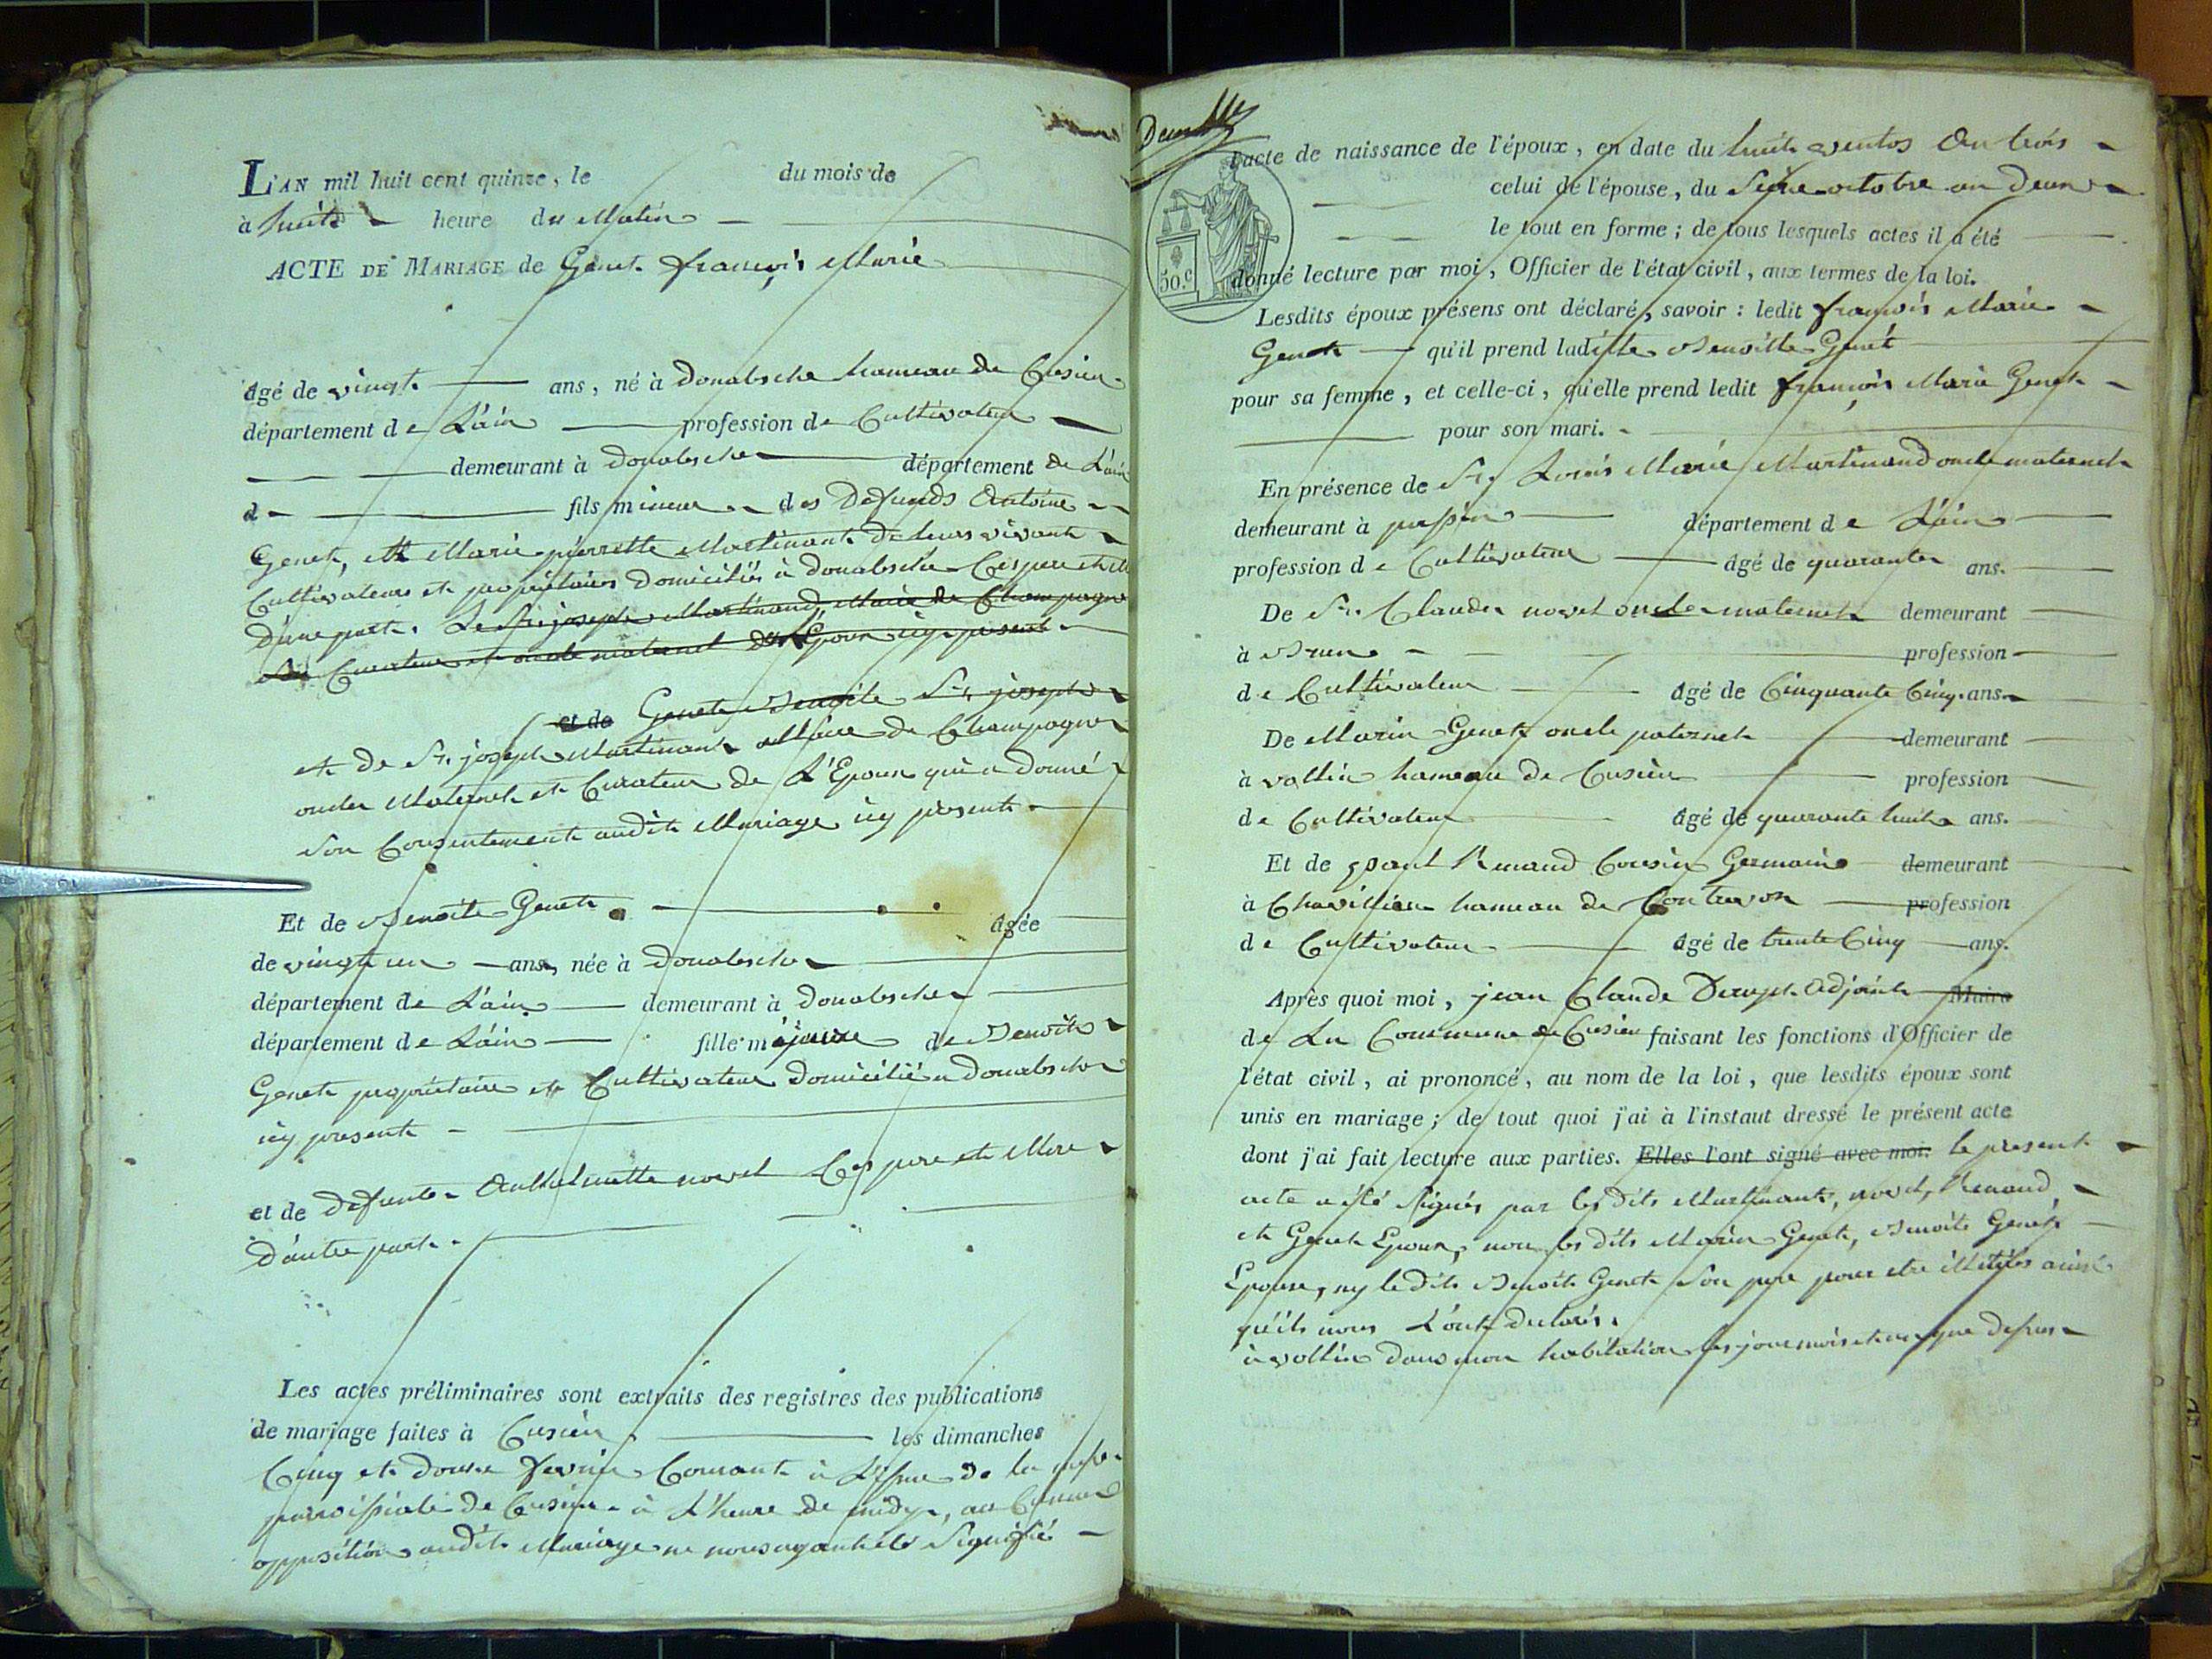 L'AN mil huit cent quinze, le du mois de
à huit heure du Matin
ACTE DE MARIAGE de Genet françois Marie
âgé de vingt ans, né à Donalsche hameau de Cusieu
département de L'ain profession de Cultivateur
demeurant à Donalsche département de L'ain
d fils mineur des Defunds Antoine
Genet, et Marie pierrette Martinant de leurs vivant
Cultivateurs et propriétaires Domiciliés à donalsche Ces pere et
D'une part. Le Sr. joseph Martinand Maire de Champagne
Curateur et oncle maternel de L'Epoux icy présent
et de Genet Benoite Sr. joseph
et de Sr. joseph Martinant Maire de Champagne
oncle Maternel et Curateur de L'Epoux qui a donné
son Consentement audit Mariage icy présent
Et de Benoite Genet âgée
de vingt un ans, née à Donalsche
département de L'ain demeurant à Donalsche
département de L'ain fille majeure de Benoit
Genet propriétaire et Cultivateur domicilié a Donalsche
icy present
et de defunte Anthelmette novel Ces pere et Mere
D'autre part.
Les actes préliminaires sont extraits des registres des publications
de mariage faites à Cusieu les dimanches
Cinq et douze fevrier Courant à L'issue de la messe
paroissiale de Cusieu à L'heure de midy, aucune
opposition audit Mariage ne nous ayant été Signifié
L'acte de naissance de l'époux, en date du huit ventos An trois
celui de l'épouse, du Seize octobre an Deux
le tout en forme; de tous lesquels actes il a été
50.c donné lecture par moi, Officier de l'état civil, aux termes de la loi.
Lesdits époux présens ont déclaré, savoir: ledit françois Marie
Genet qu'il prend ladite Benoitte Genet
pour sa femme, et celle-ci, qu'elle prend ledit françois Marie Genet
pour son mari.
En présence de Sr. Louis Marie Martinand oncle maternel
demeurant à passin département de L'ain
profession de Cultivateur âgé de quarante ans.
De Sr. Claude novel oncle maternel demeurant
à profession
de Cultivateur âgé de Cinquante Cinq ans.
De Marin Genet oncle paternel demeurant
à vollin hameau de Cusieu profession
de Cultivateur âgé de quarante huit ans.
Et de paul Renaud Cousin Germain demeurant
à Chavillieu hameau de Contrevoz profession
de Cultivateur âgé de trente Cinq ans.
Après quoi moi, jean Claude Adjoint Maire
de La Commune de Cusieu faisant les fonctions d'Officier de
l'état civil, ai prononcé, au nom de la loi, que lesdits époux sont
unis en mariage; de tout quoi j'ai à l'instaut dressé le présent acte
dont j'ai fait lecture aux parties. Elles l'ont signé avec moi. le present
acte a été Signés par les dits Martinant, novel, Renaud,
et Genet Epoux, non les dits Marin Genet, Benoite Genet
Epouse, ny le dit Benoit Genet son pere pour etre illitérés ainsi
qu'ils nous L'ont declarés.
à vollin dans mon habitation les jour mois et an que dessus